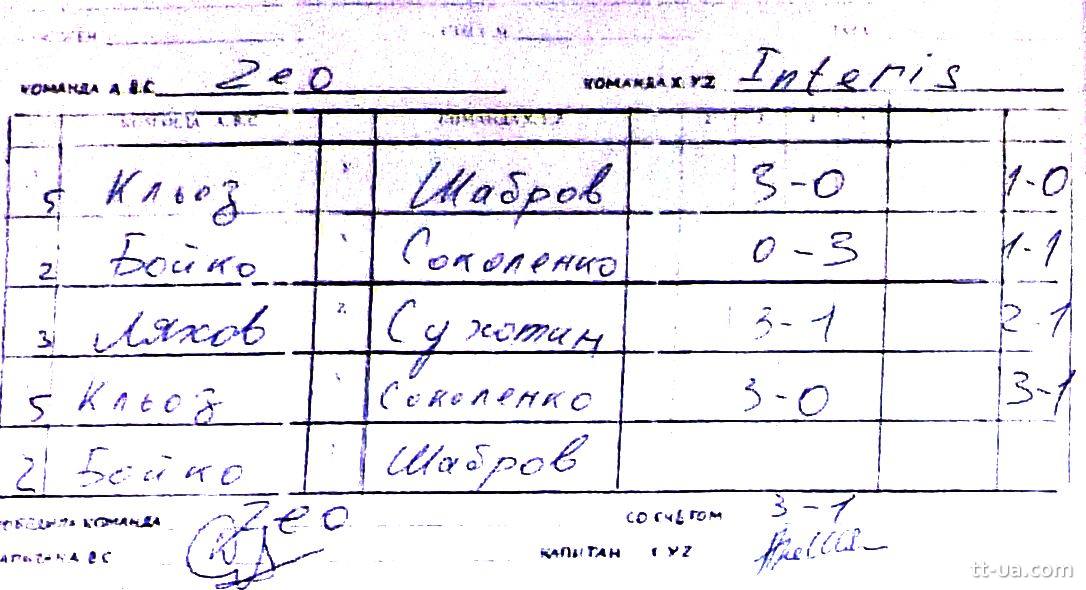 КОМАНДА А В.С. Zeo КОМАНДА Х.YZ Interis
КОМАНДА А.В.С КОМАНДА X.Y.Z
5 Кльоз Шабров 3-0 1-0
2 Бойко Соколенко 0-3 1-1
3 Ляхов Сухотин 3-1 2-1
5 Кльоз Соколенко 3-0 3-1
2 Бойко Шабров
КОМАНДА Zeo СО СЧЕТОМ 3-1
ВС КАПИТАН YZ
tt-ua.com